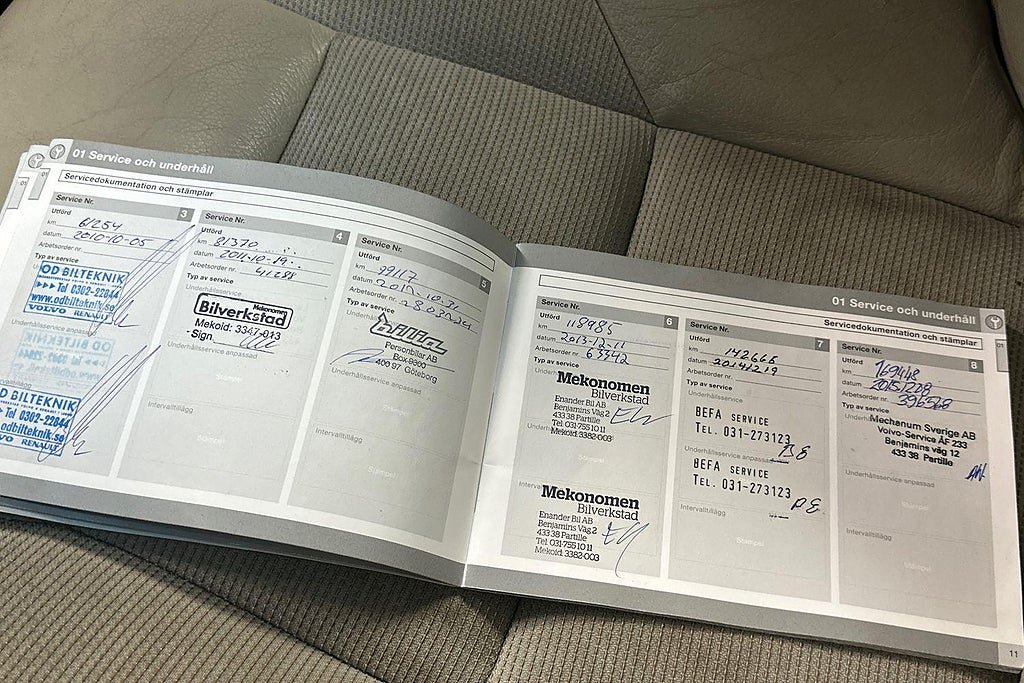 01 Service och underhåll
Servicedokumentation och stämplar
Service Nr.
3
Utförd
km 61254
datum 2010-10-05
Arbetsorder nr.
Typ av service
OD BILTEKNIK
Tel 0302-22844
www.odbilteknik.se
VOLVO RENAULT
Underhållsservice anpassad
OD BILTEKNIK
OD BILTEKNIK
Tel 0302-22844
www.odbilteknik.se
VOLVO RENAULT
Service Nr.
4
Utförd
km 81370
datum 2011-10-19
Arbetsorder nr. 41288
Typ av service
Underhållsservice
Mekonomen
Bilverkstad
Mekoid: 3347-013
Sign
Underhållsservice anpassad
Stämpel
Intervalltillägg
Stämpel
Service Nr.
5
Utförd
km 99117
datum
Arbetsorder nr.
Typ av service
Underhållsservice
bilia
Personbilar AB
Box 9300
400 97 Göteborg
Underhållsservice anpassad
Stämpel
Intervalltillägg
Stämpel
01 Service och underhåll
Servicedokumentation och stämplar
01
Service Nr.
6
Utförd
km 118985
datum 2013-12-11
Arbetsorder nr. 63342
Typ av service
Mekonomen
Bilverkstad
Enander Bil AB
Benjamins Väg 2
433 38 Partille
Tel: 031-755 10 11
Mekoid: 3382-003
Stämpel
Mekonomen
Bilverkstad
Enander Bil AB
Benjamins Väg 2
433 38 Partille
Tel: 031-755 10 11
Mekoid: 3382-003
Service Nr.
7
Utförd
km 142666
datum 20141219
Arbetsorder nr.
Typ av service
Underhållsservice
BEFA SERVICE
TEL. 031-273123
Underhållsservice anpassad
BEFA SERVICE
TEL. 031-273123
Intervalltillägg
Stämpel
Service Nr.
8
Utförd
km 169448
datum 20151228
Arbetsorder nr. 396568
Typ av service
Mechanum Sverige AB
Volvo-Service ÅF 233
Benjamins väg 12
433 38 Partille
Underhållsservice anpassad
Stämpel
Intervalltillägg
Stämpel
11